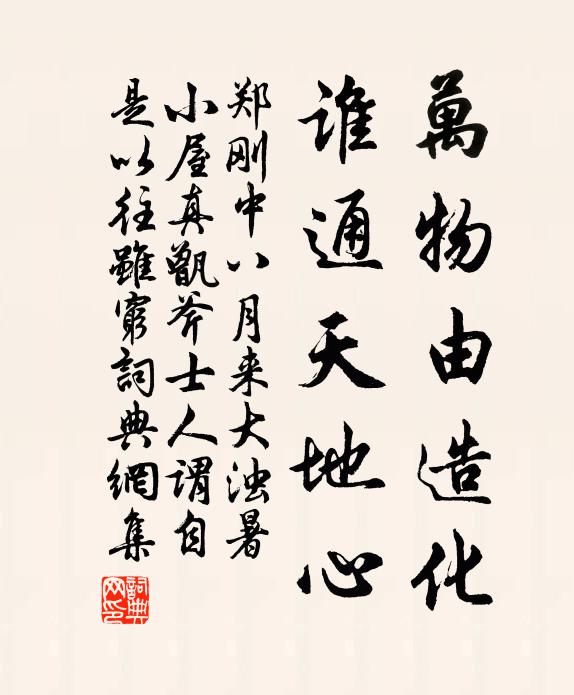 萬物由造化
誰通天地心
郑刚中八月来大浊暑
小屋真甑斧士人謂自
是以往雖窮詞典網集
詞典网印